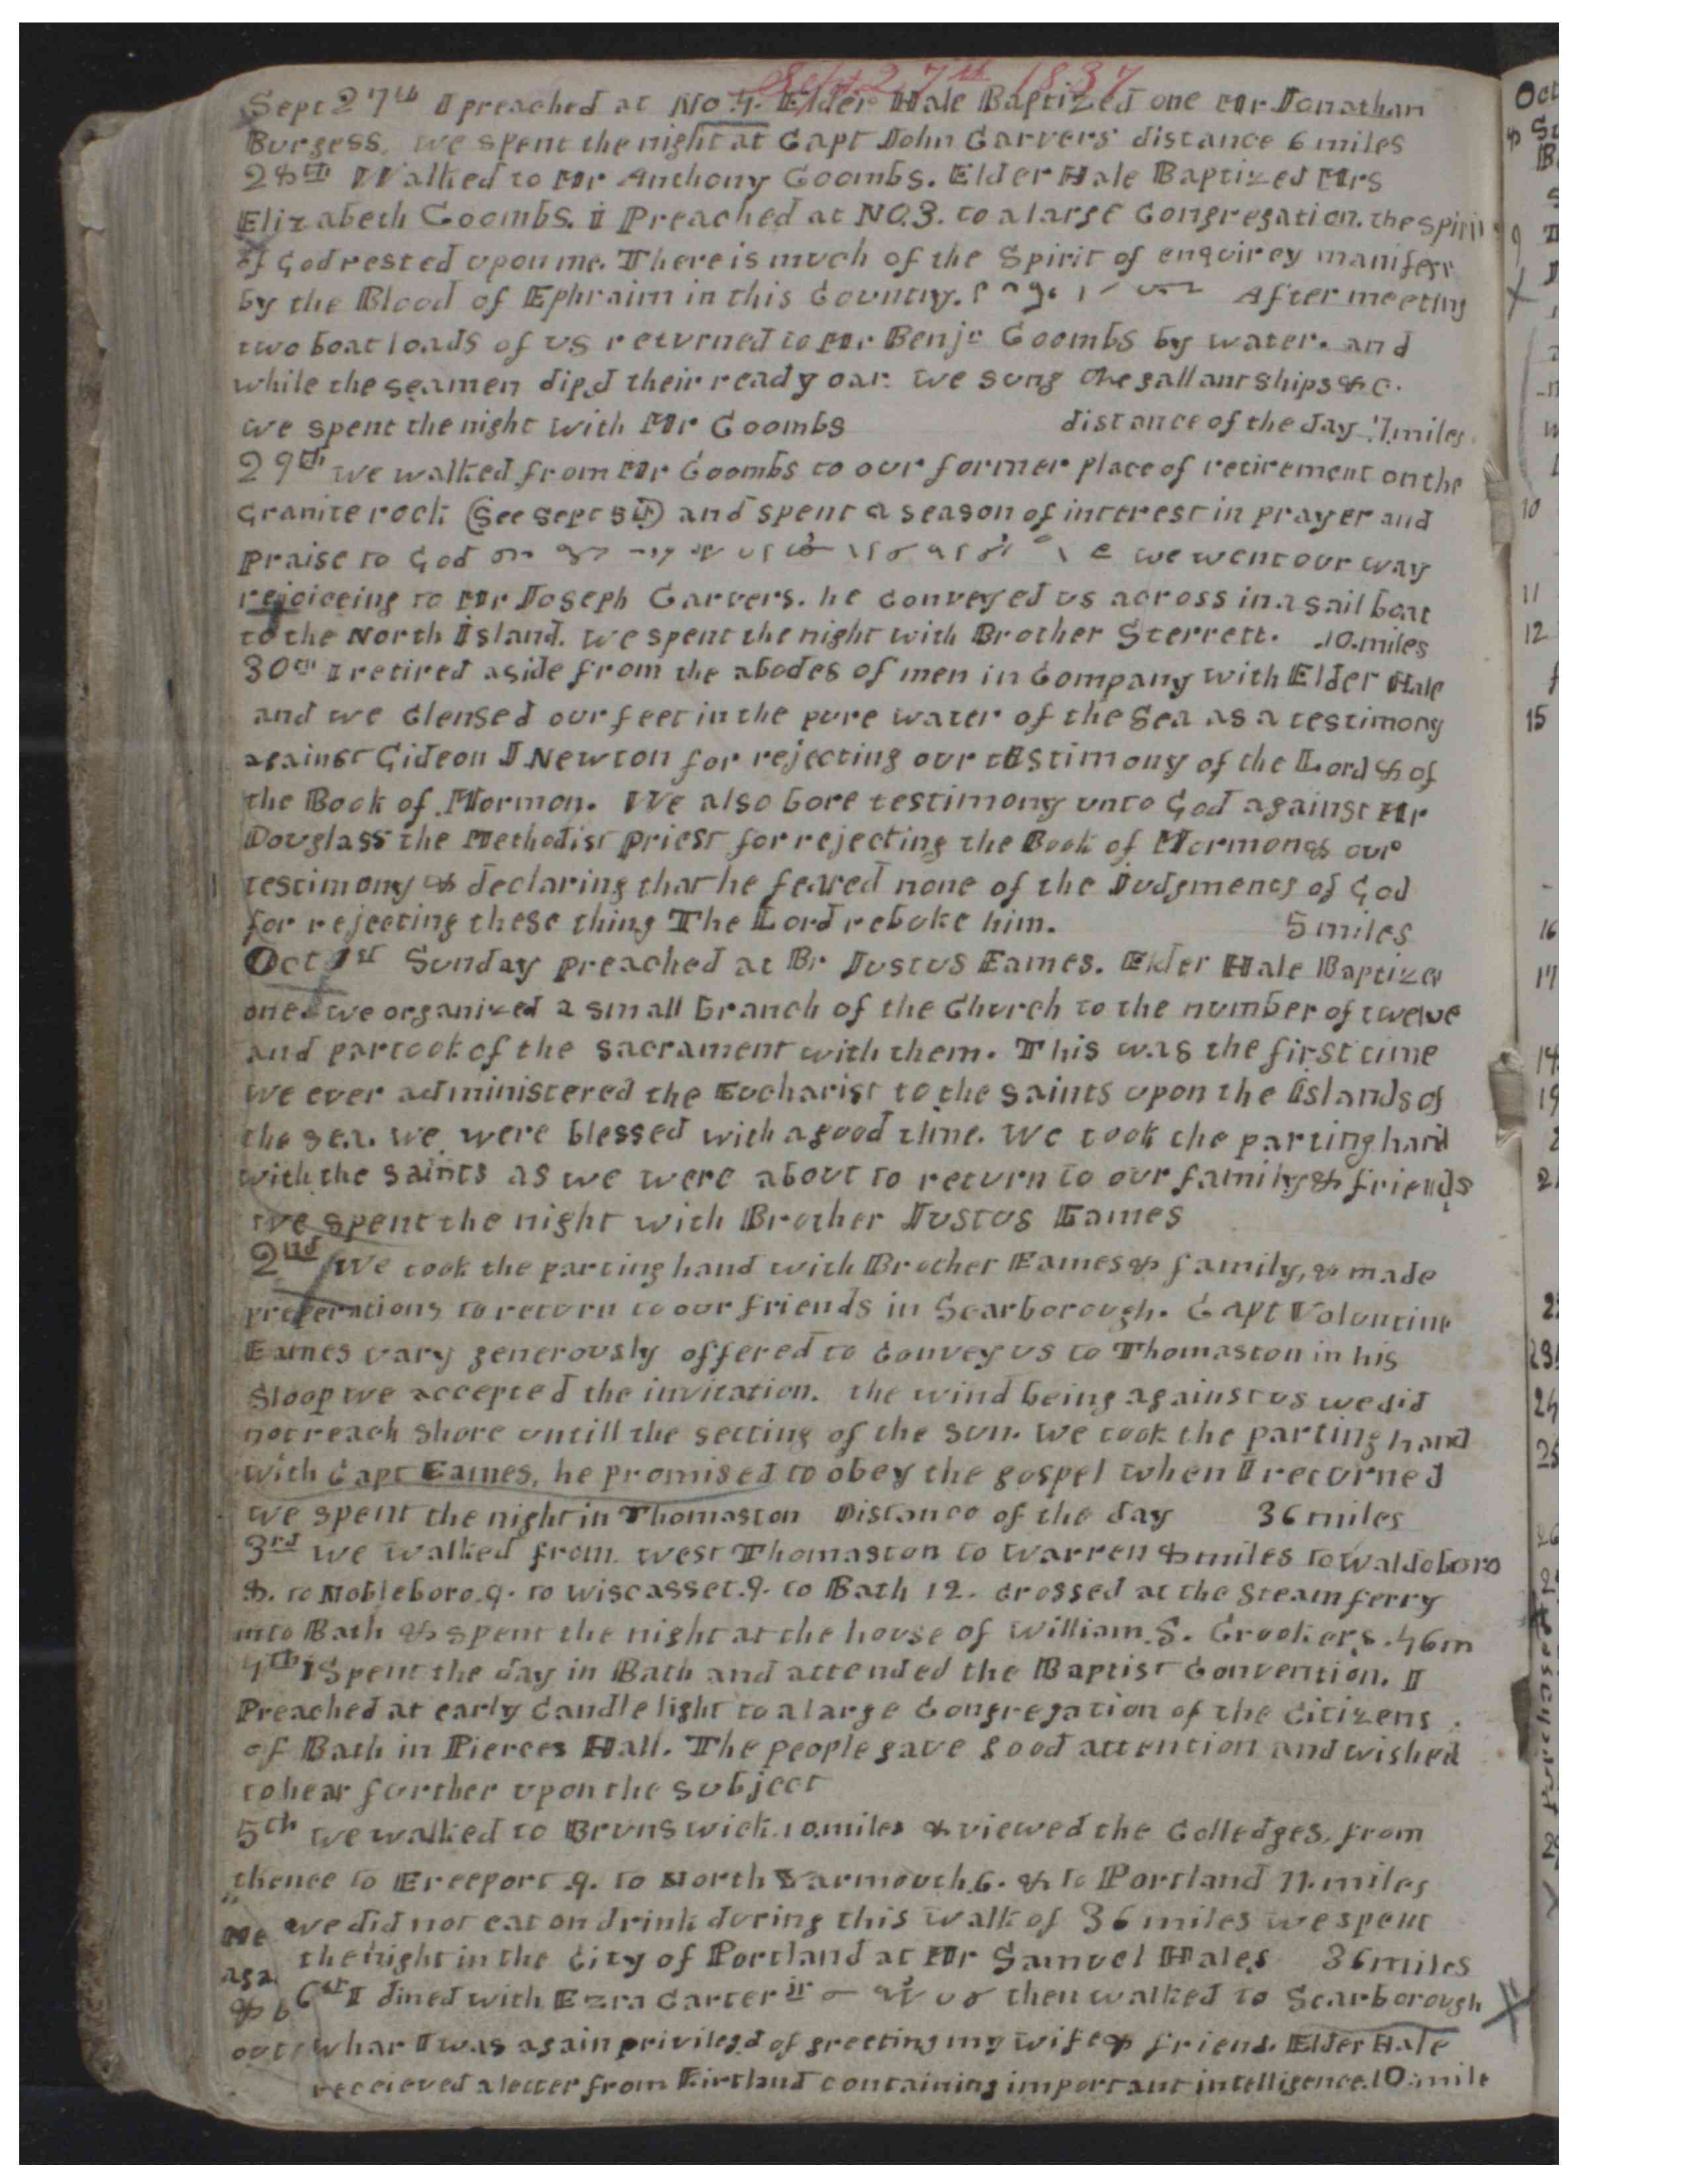 Sept. 27th 1837
Sept 27th I preached at No 4. Elder Hale Baptized one Mr Jonathan
Burgess. We spent the night at Capt John Carvers distance 6 miles
28th Walked to Mr Anthony Coombs. Elder Hale Baptized Mrs
Elizabeth Coombs. I Preached at NO. 3. to a large Congregation. the Spirit
of God rested upon me. There is much of the Spirit of enquirey manifest
by the Blood of Ephraim in this Country. After meeting
two boat loads of us returned to Mr Benjn Coombs by water. and
while the seamen dip,d their ready oar. we sung The gallant ships &c.
we spent the night with Mr Coombs distance of the day 7. miles
29th we walked from Mr Coombs to our former place of retirement on the
Granite rock (See Sept 5th) and spent a season of interest in prayer and
praise to God we went our way
rejoiceing to Mr Joseph Carvers. he conveyed us across in a sail boat
to the North Island. We spent the night with Brother Sterrett. .10. miles
30th I retired aside from the abodes of men in Company with Elder Hale
and we Clensed our feet in the pure water of the Sea as a testimony
against Gideon J Newton for rejecting our testimony of the Lord & of
the Book of Mormon. We also bore testimony unto God against Mr
Douglass the Methodist priest for rejecting the Book of Mormon & our
testimony & declaring that he feared none of the Judgments of God
for rejecting these thing The Lord rebuke him. 5 miles
Oct 1st Sunday preached at Br Justus Eames. Elder Hale Baptized
one. we organized a small branch of the Church to the number of twelve
and partook of the sacrament with them. This was the first time
we ever administered the Eucharist to the saints upon the Islands of
the sea. we were blessed with a good time. We took the parting hand
with the saints as we were about to return to our family & friends
we spent the night with Brother Justus Eames
2nd We took the parting hand with Brother Eames & family, & made
preperations to return to our friends in Scarborough. Capt Voluntine
Eames vary generously offered to Convey us to Thomaston in his
Sloop we accepted the invitation. the wind being against us we did
not reach shore untill the setting of the sun. We took the parting hand
with Capt Eames, he promised to obey the gospel when I returned
we spent the night in Thomaston Distance of the day 36 miles
3rd we walked from west Thomaston to Warren 8 miles to Waldoboro
8. to Nobleboro. 9. to Wiscasset. 9. to Bath 12. Crossed at the Steam ferry
into Bath & spent the night at the house of William. S. Crookers. 46 m
4th I Spent the day in Bath and attended the Baptist Convention. I
Preached at early Candle light to a large Congregation of the Citizens
of Bath in Pierces Hall. The people gave good attention and wished
to hear further upon the subject
5th we walked to Brunswick. 10. miles & viewed the Colledges. from
thence to Freeport .9. to North Yarmouth. 6. & to Portland 11. miles
we did not eat on drink during this walk of 36 miles we spent
the night in the City of Portland at Mr Samuel Hales 36 miles
6th I dined with Ezra Carter Jr then walked to Scarborough
whar I was again privileg,d of greeting my wife & friend. Elder Hale
receieved a letter from Kirtland containing important intelligence. 10. mile